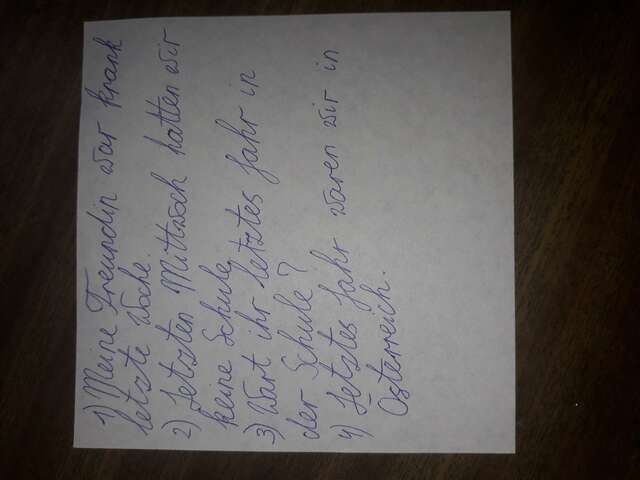 1) Meine Freundin war krank
letzte Woche.
2) Letzten Mittwoch hatten wir
keine Schule
3) Wart ihr letztes Jahr in
der Schule?
4) Letztes Jahr waren wir in
Österreich.